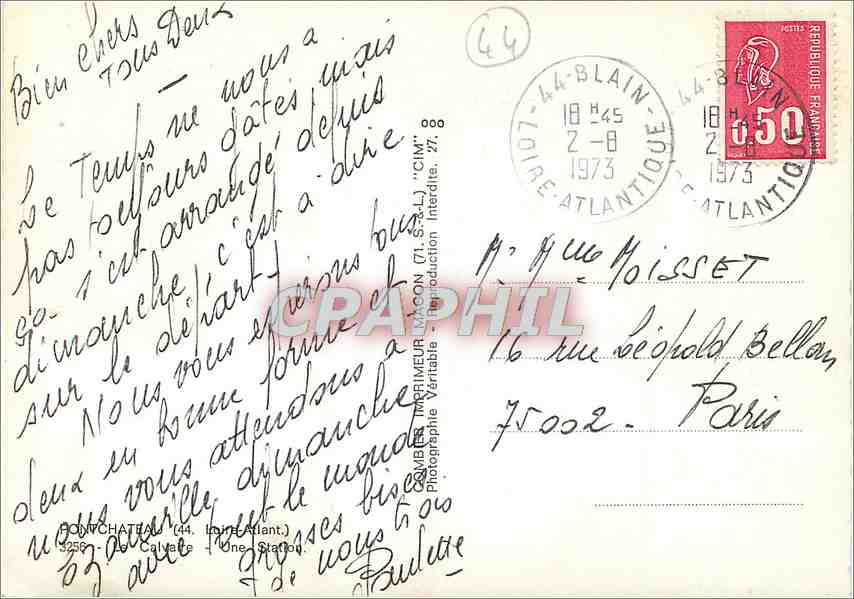 Bien chers
Tous Deux
Le Temps ne nous a
pas toujours gâtés mais
ça s'est arrangé depuis
dimanche, c'est à dire
sur le départ !
Nous vous espérons tous
deux en bonne forme et
nous vous attendons à
dimanche
avec tout le monde
grosses bises
de nous trois
Paulette
PONTCHATEAU (44. Loire-Atlant.)
3256 - Le Calvaire - Une Station.
COMBIER IMPRIMEUR MACON (71. S.-&-L.) "CIM"
Photographie Véritable - Reproduction Interdite. 27.
000
44
44-BLAIN
18 H 45
2 -8
1973
LOIRE-ATLANTIQUE
44-BLAIN
18 H 45
2 -8
1973
LOIRE-ATLANTIQUE
POSTES
REPUBLIQUE FRANÇAISE
0,50
CPAPHIL
Mr Mme MOISSET
16 rue Léopold Bellan
75002 - Paris